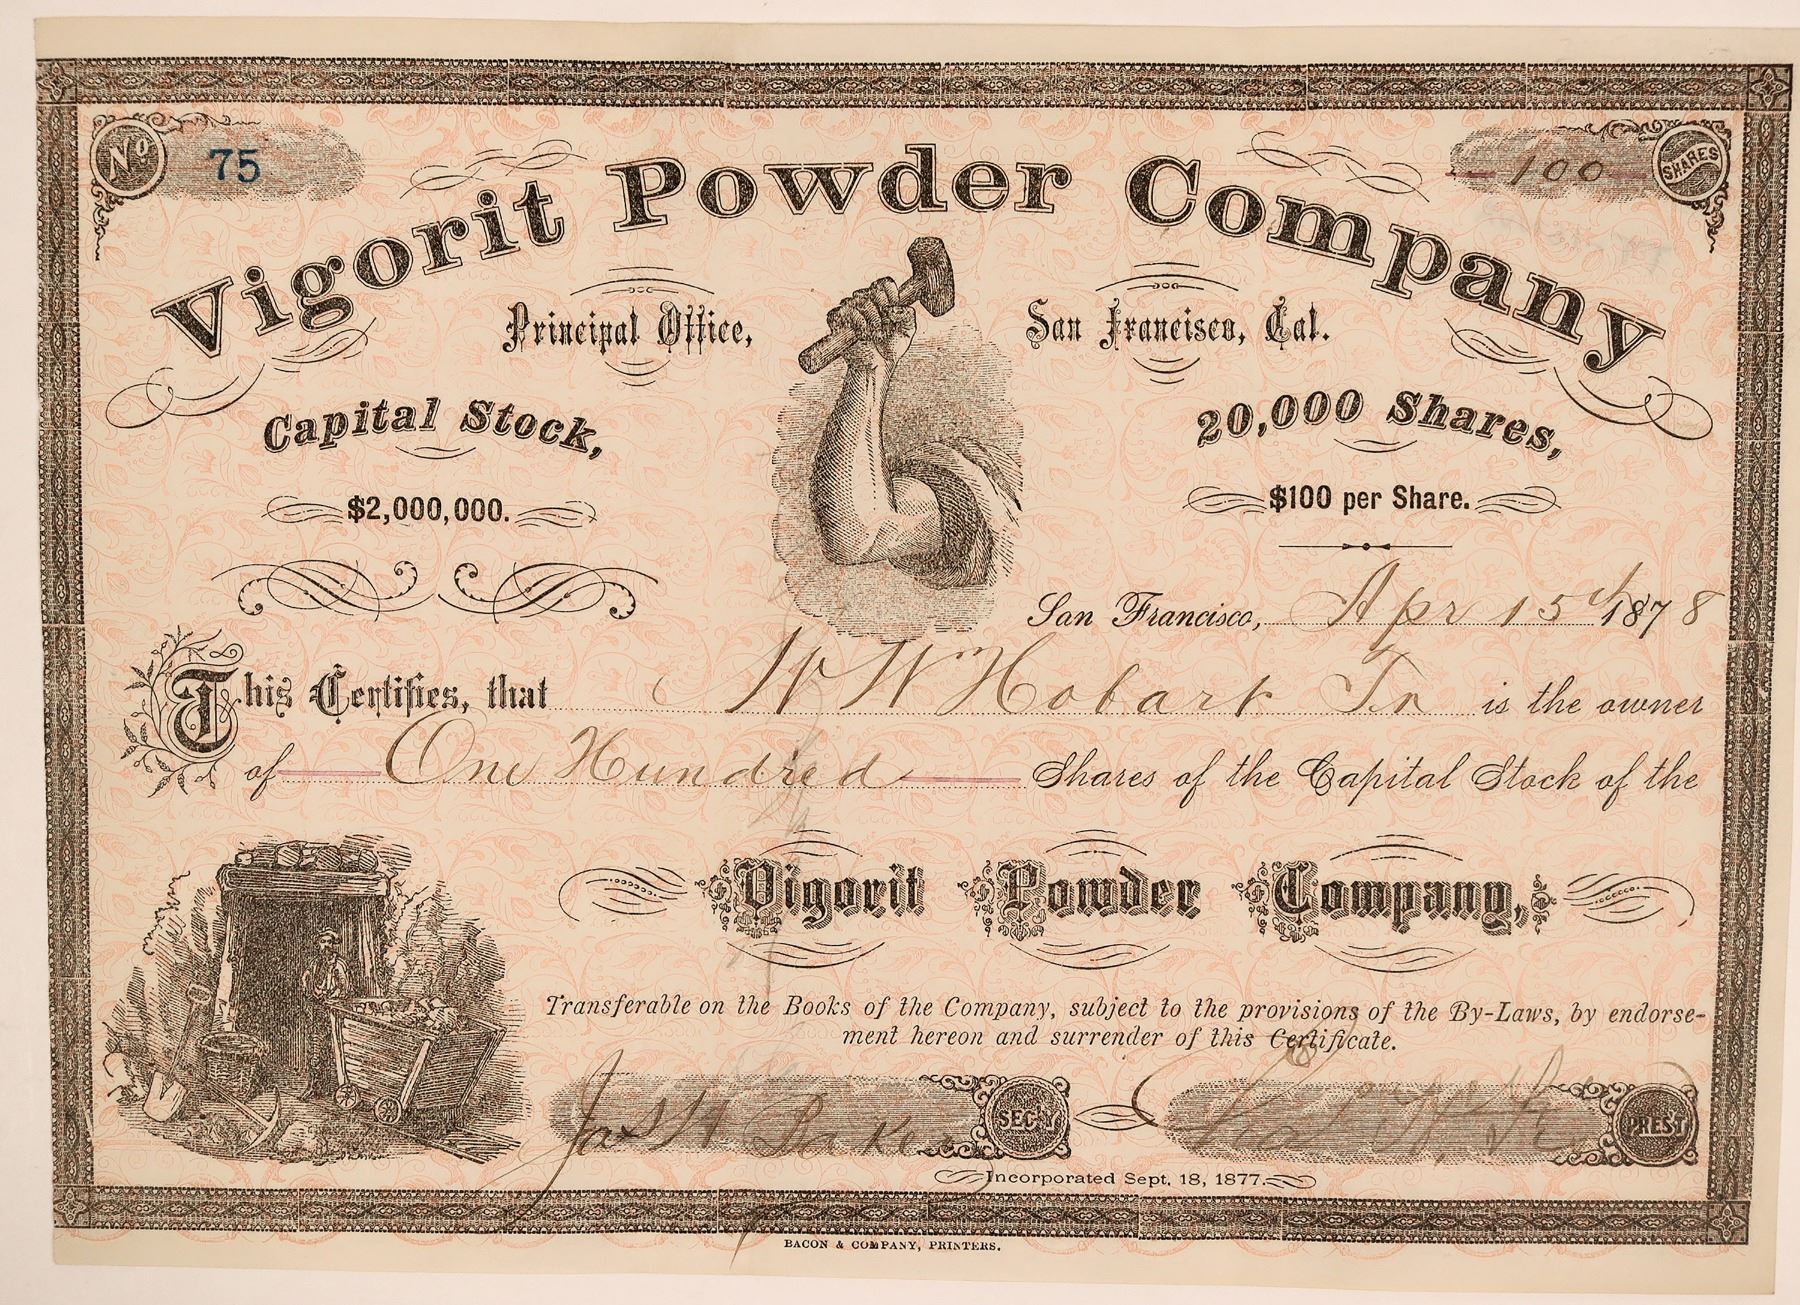 No 75
100 SHARES
Vigorit Powder Company
Principal Office, San Francisco, Cal.
Capital Stock, 20,000 Shares,
$2,000,000. $100 per Share.
San Francisco, Apr 15th 1878
This Certifies, that W W Hobart Tr is the owner
of One Hundred Shares of the Capital Stock of the
Vigorit Powder Company,
Transferable on the Books of the Company, subject to the provisions of the By-Laws, by endorse-
ment hereon and surrender of this Certificate.
Jas H Baker SEC'Y PREST
Incorporated Sept. 18, 1877.
BACON & COMPANY, PRINTERS.